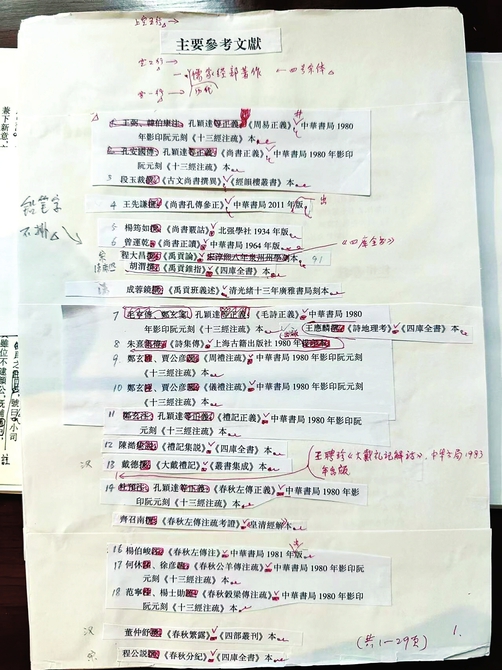 上空五行→
主要參考文獻
空2行→
一、儒家經部著作 ←四号宋体
空一行→
1 王弼、韓伯康注,孔穎達等正義《周易正義》中華書局1980
年影印阮元刻《十三經注疏》本
2 孔安國傳,孔穎達等正義《尚書正義》中華書局1980年影印
阮元刻《十三經注疏》本
3 段玉裁《古文尚書撰異》《經韻樓叢書》本
4 王先謙《尚書孔傳參正》中華書局2011年版
鉛筆字
不排
5 楊筠如《尚書覈詁》北强學社1934年版
6 曾運乾《尚書正讀》中華書局1964年版
《四庫全書》
宋 程大昌《禹貢論》
胡渭《禹貢錐指》《四庫全書》本
成蓉鏡《禹貢班義述》清光緒十三年廣雅書局刻本
7 毛亨傳,鄭玄箋,孔穎達等正義《毛詩正義》中華書局1980
年影印阮元刻《十三經注疏》本
王應麟《詩地理考》《四庫全書》本
8 朱熹《詩集傳》上海古籍出版社1980年
9 鄭玄、賈公彥《周禮注疏》中華書局1980年影印阮元刻
《十三經注疏》本
10 鄭玄、賈公彥《儀禮注疏》中華書局1980年影印阮元刻
《十三經注疏》本
11 鄭玄注,孔穎達等正義《禮記正義》中華書局1980年影印阮
元刻《十三經注疏》本
12 陳澔《禮記集説》《四庫全書》本
漢 13 戴德《大戴禮記》《叢書集成》本
王聘珍《大戴礼记解詁》,中华書局1983
年出版
14 杜預注,孔穎達等正義《春秋左傳正義》中華書局1980年影
印阮元刻《十三經注疏》本
齊召南《春秋左傳注疏考證》《皇清經解》本
16 楊伯峻《春秋左傳注》中華書局1981年版
17 何休、徐彦《春秋公羊傳注疏》中華書局1980年影印阮
元刻《十三經注疏》本
18 范寧、楊士勛《春秋穀梁傳注疏》中華書局1980年影印
阮元刻《十三經注疏》本
汉 董仲舒《春秋繁露》《四部叢刊》本
宋 程公説《春秋分紀》《四庫全書》本
(共1—29页)
1.